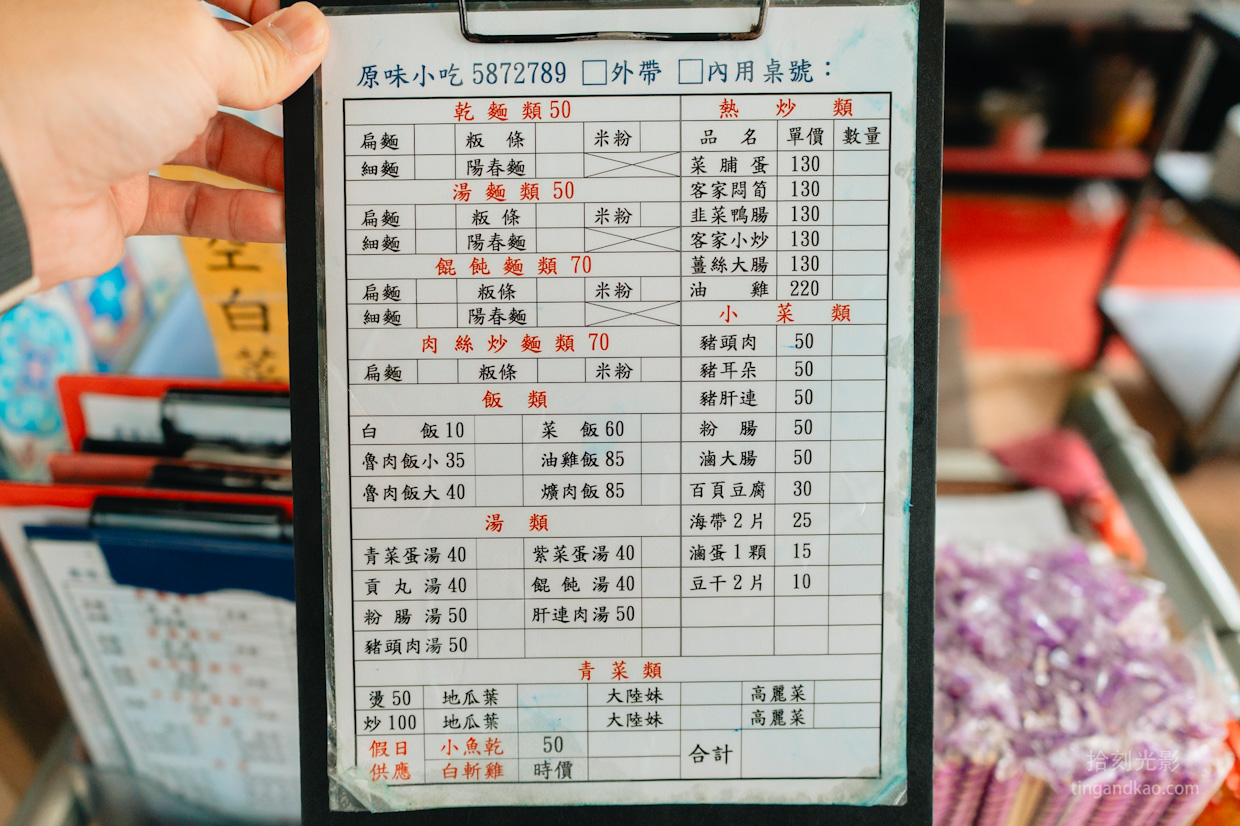 原味小吃 5872789 □外帶 □內用桌號：
乾麵類 50
扁麵 粄條 米粉
細麵 陽春麵
湯麵類 50
扁麵 粄條 米粉
細麵 陽春麵
餛飩麵類 70
扁麵 粄條 米粉
細麵 陽春麵
肉絲炒麵類 70
扁麵 粄條 米粉
飯類
白飯 10 菜飯 60
魯肉飯小 35 油雞飯 85
魯肉飯大 40 爌肉飯 85
湯類
青菜蛋湯 40 紫菜蛋湯 40
貢丸湯 40 餛飩湯 40
粉腸湯 50 肝連肉湯 50
豬頭肉湯 50
熱炒類
品名 單價 數量
菜脯蛋 130
客家悶筍 130
韭菜鴨腸 130
客家小炒 130
薑絲大腸 130
油雞 220
小菜類
豬頭肉 50
豬耳朵 50
豬肝連 50
粉腸 50
滷大腸 50
百頁豆腐 30
海帶2片 25
滷蛋1顆 15
豆干2片 10
青菜類
燙 50 地瓜葉 大陸妹 高麗菜
炒 100 地瓜葉 大陸妹 高麗菜
假日供應 小魚乾 50
白斬雞 時價
合計
空白菜
拾刻光影
tingandkao.com